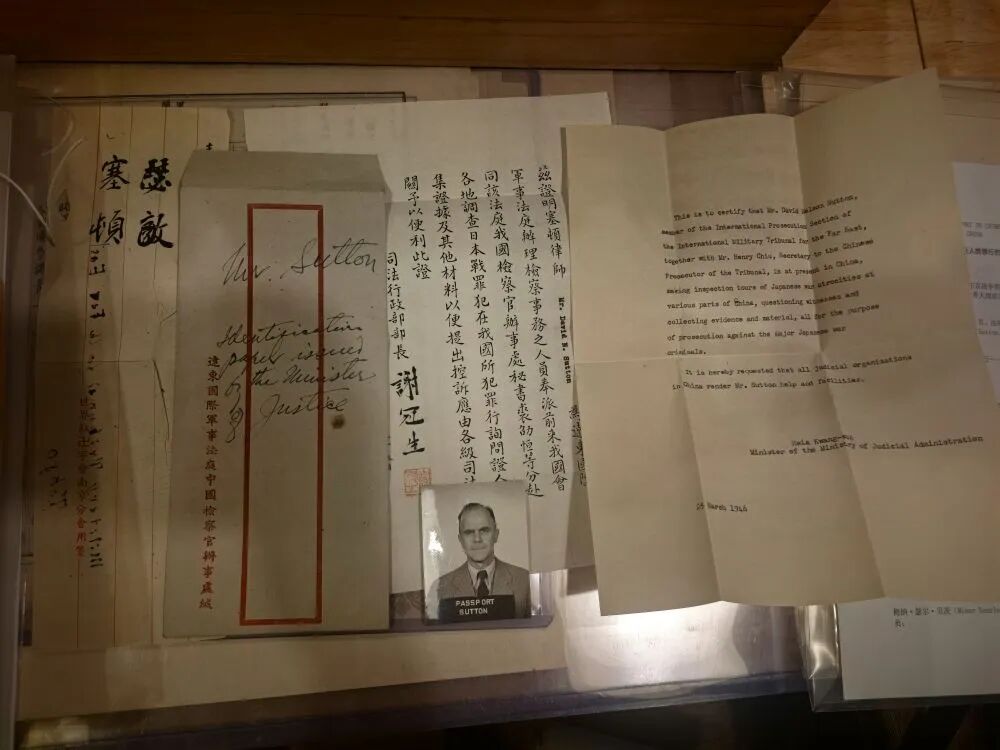 瑟敵
塞頓
世界紅卍字會南京分會用箋
Mr. Sutton
Identification
paper issued
by the Minister
of Justice
遠東國際軍事法庭中國檢察官辦事處緘
茲證明塞頓律師 Mr. David N. Sutton 為遠東國際
軍事法庭辦理檢察事務之人員奉派前來我國會
同該法庭我國檢察官辦事處秘書裘劭恒等分赴
各地調查日本戰罪犯在我國所犯罪行詢問證人
集證據及其他材料以便提出控訴應由各級司法
關予以便利此證
司法行政部部長 謝冠生
PASSPORT
SUTTON
This is to certify that Mr. David Nelson Sutton,
member of the International Prosecution Section of
the International Military Tribunal for the Far East,
together with Mr. Henry Chiu, Secretary to the Chinese
Prosecutor of the Tribunal, is at present in China,
making inspection tours of Japanese war atrocities at
various parts of China, questioning witnesses and
collecting evidence and material, all for the purpose
of prosecution against the major Japanese war
criminals.
It is hereby requested that all judicial organizations
in China render Mr. Sutton help and facilities.
Hsia Kwang-
Minister of the Ministry of Judicial Administration
March 1946